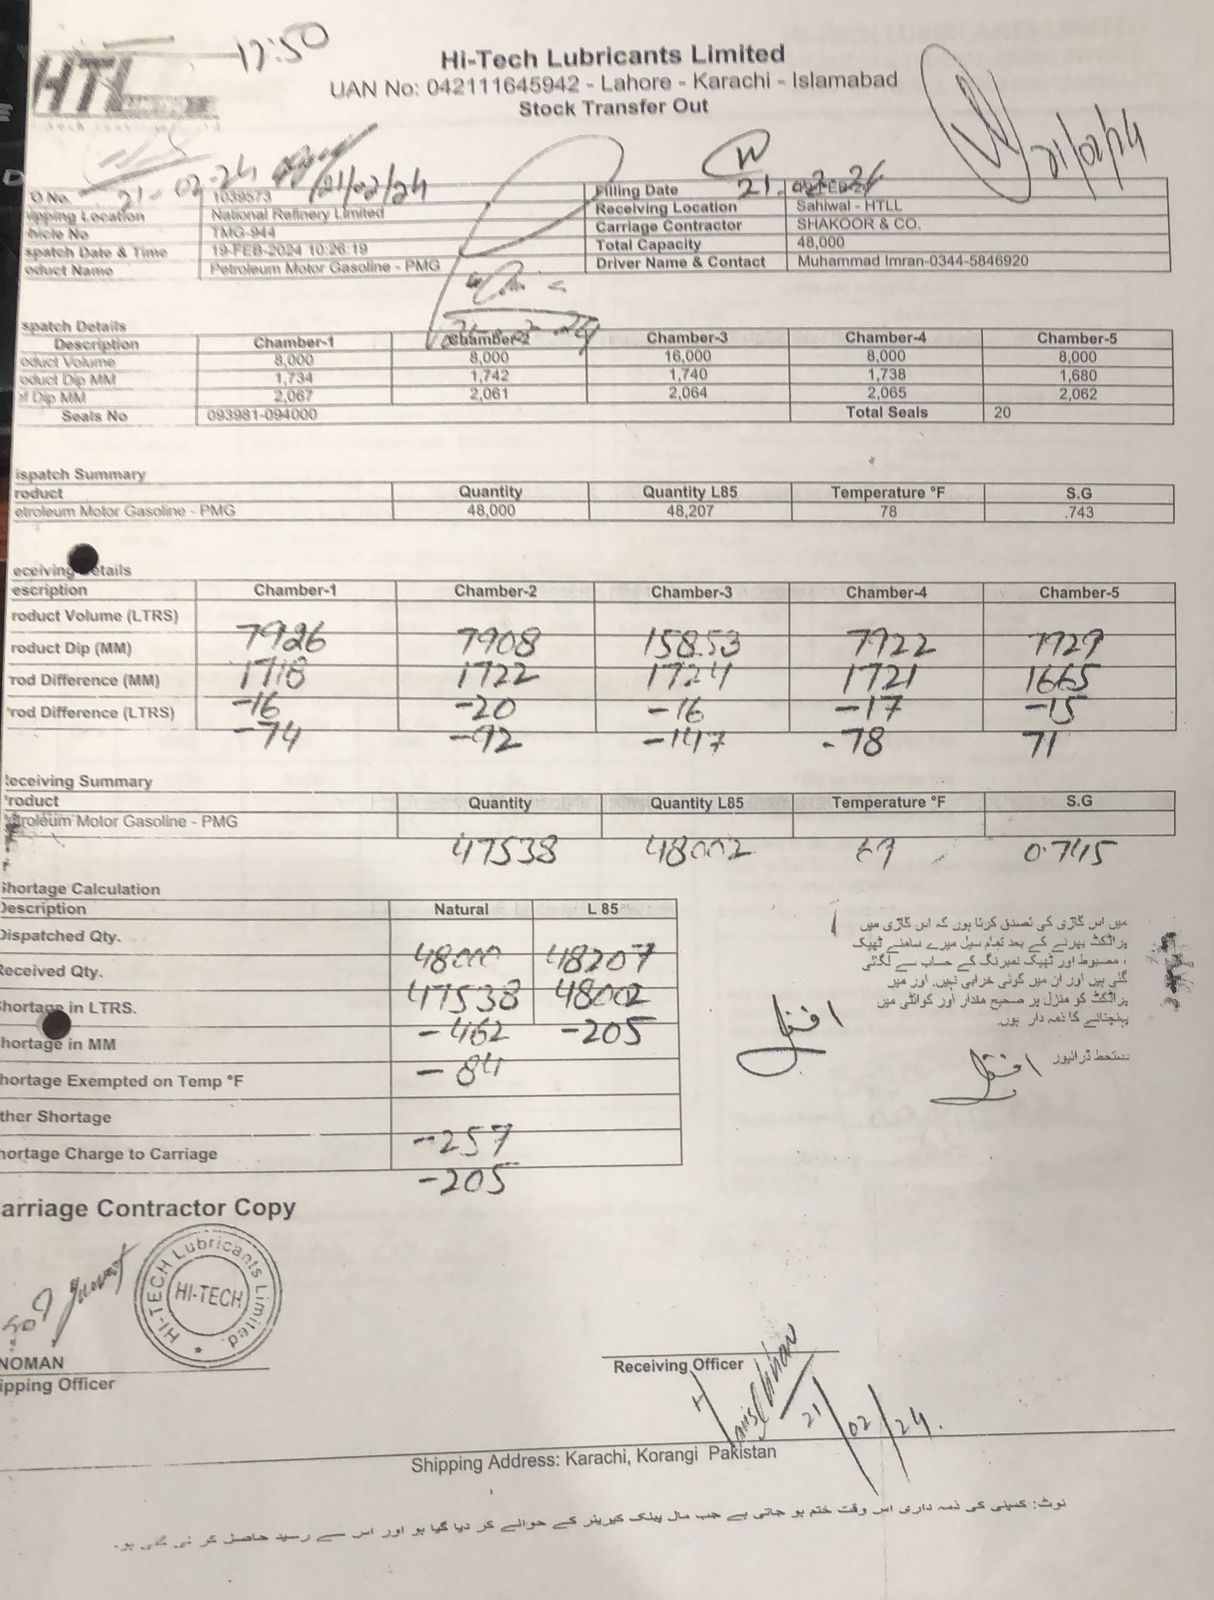 17:50
HTL
Hi-Tech Lubricants Limited
UAN No: 042111645942 - Lahore - Karachi - Islamabad
Stock Transfer Out
21-02-24 21/02/24 21/02/24
O No. 1039573 Filling Date
ipping Location National Refinery Limited Receiving Location Sahiwal - HTLL
hicle No TMG-944 Carriage Contractor SHAKOOR & CO.
spatch Date & Time 19-FEB-2024 10:26:19 Total Capacity 48,000
oduct Name Petroleum Motor Gasoline - PMG Driver Name & Contact Muhammad Imran-0344-5846920
spatch Details
Description Chamber-1 Chamber-2 Chamber-3 Chamber-4 Chamber-5
oduct Volume 8,000 8,000 16,000 8,000 8,000
oduct Dip MM 1,734 1,742 1,740 1,738 1,680
ef Dip MM 2,067 2,061 2,064 2,065 2,062
Seals No 093981-094000 Total Seals 20
ispatch Summary
roduct Quantity Quantity L85 Temperature °F S.G
etroleum Motor Gasoline - PMG 48,000 48,207 78 .743
eceiving Details
escription Chamber-1 Chamber-2 Chamber-3 Chamber-4 Chamber-5
roduct Volume (LTRS) 7926 7908 15853 7922 7929
roduct Dip (MM) 1718 1722 1724 1721 1665
rod Difference (MM) -16 -20 -16 -17 -15
rod Difference (LTRS) -74 -92 -147 -78 71
eceiving Summary
roduct Quantity Quantity L85 Temperature °F S.G
troleum Motor Gasoline - PMG
47538 48002 69 0.745
Shortage Calculation
Description Natural L 85
Dispatched Qty. 48000 48207
Received Qty. 47538 48002
Shortage in LTRS. -462 -205
hortage in MM -84
hortage Exempted on Temp °F
ther Shortage -257
hortage Charge to Carriage -205
میں اس گاڑی کی تصدق کرتا ہوں کہ اس گاڑی میں
پراڈکٹ بھرنے کے بعد تمام سیل میرے سامنے ٹھیک
، مضبوط اور ٹھیک نمبرنگ کے حساب سے لگائی
گئی ہیں اور ان میں کوئی خرابی نہیں. اور میں
پراڈکٹ کو منزل پر صحیح مقدار اور کوالٹی میں
پہنچانے کا ذمہ دار ہوں.
دستخط ڈرائیور
arriage Contractor Copy
HI-TECH Lubricants Limited.
HI-TECH
NOMAN
ipping Officer
Receiving Officer
21/02/24.
Shipping Address: Karachi, Korangi Pakistan
نوٹ: کمپنی کی ذمہ داری اس وقت ختم ہو جاتی ہے جب مال پبلک کیریئر کے حوالے کر دیا گیا ہو اور اس سے رسید حاصل کر لی گئی ہو.